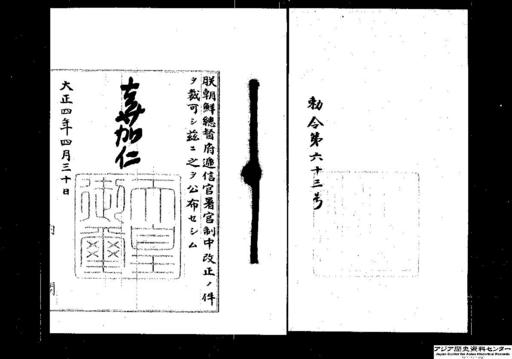 勅令第六十三号
朕朝鮮總督府遞信官署官制中改正ノ件
ヲ裁可シ茲ニ之ヲ公布セシム
嘉仁
天皇
御璽
大正四年四月三十日
内閣
アジア歴史資料センター
Japan Center for Asian Historical Records